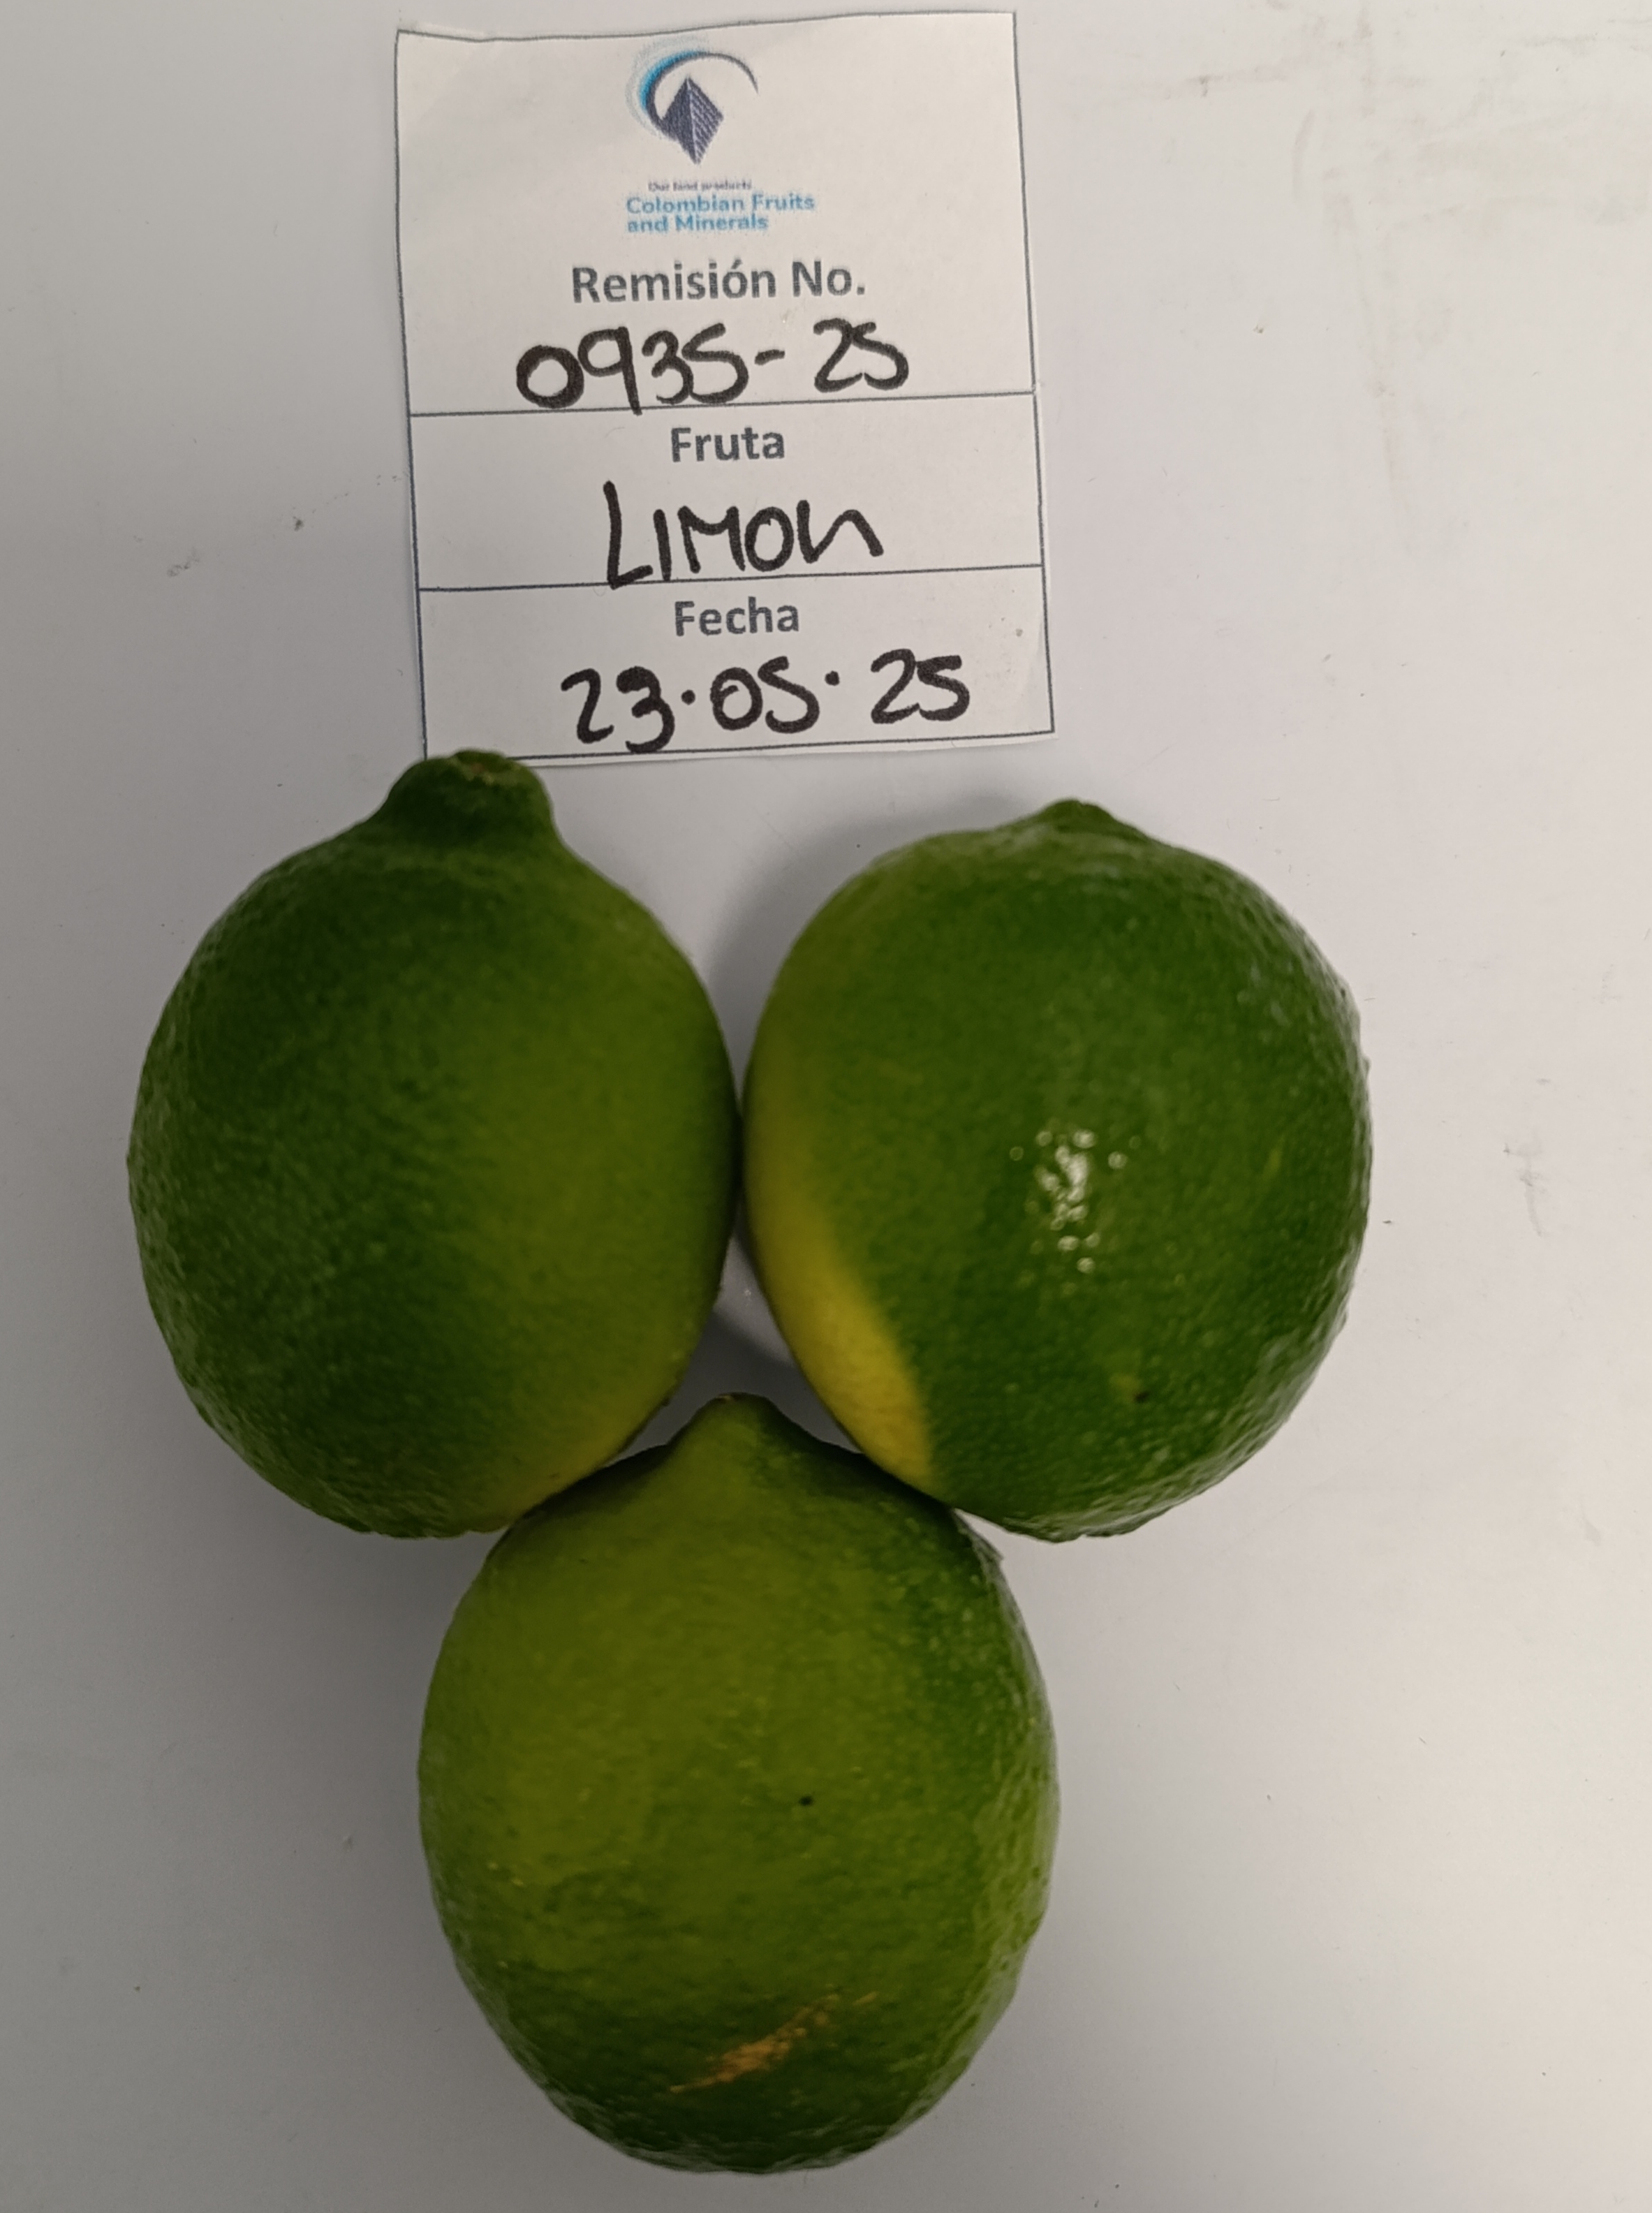 Our land products
Colombian Fruits
and Minerals
Remisión No.
0935-25
Fruta
LIMON
Fecha
23.05.25